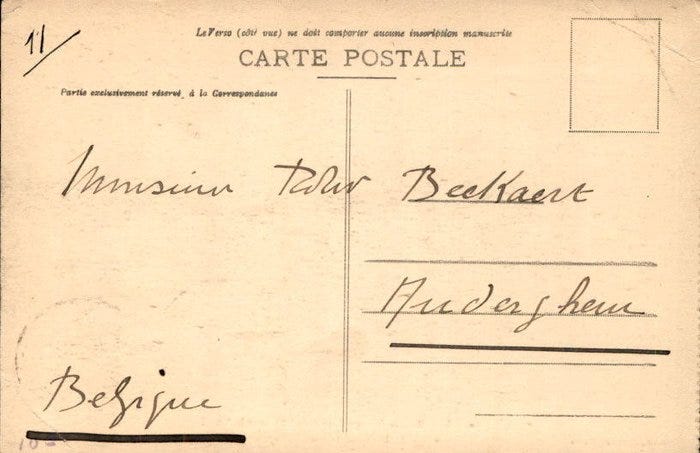 11/
Le Verso (côté vue) ne doit comporter aucune inscription manuscrite
CARTE POSTALE
Partie exclusivement réservé, à la Correspondance
Monsieur Beekaert
Auderghem
Belgique